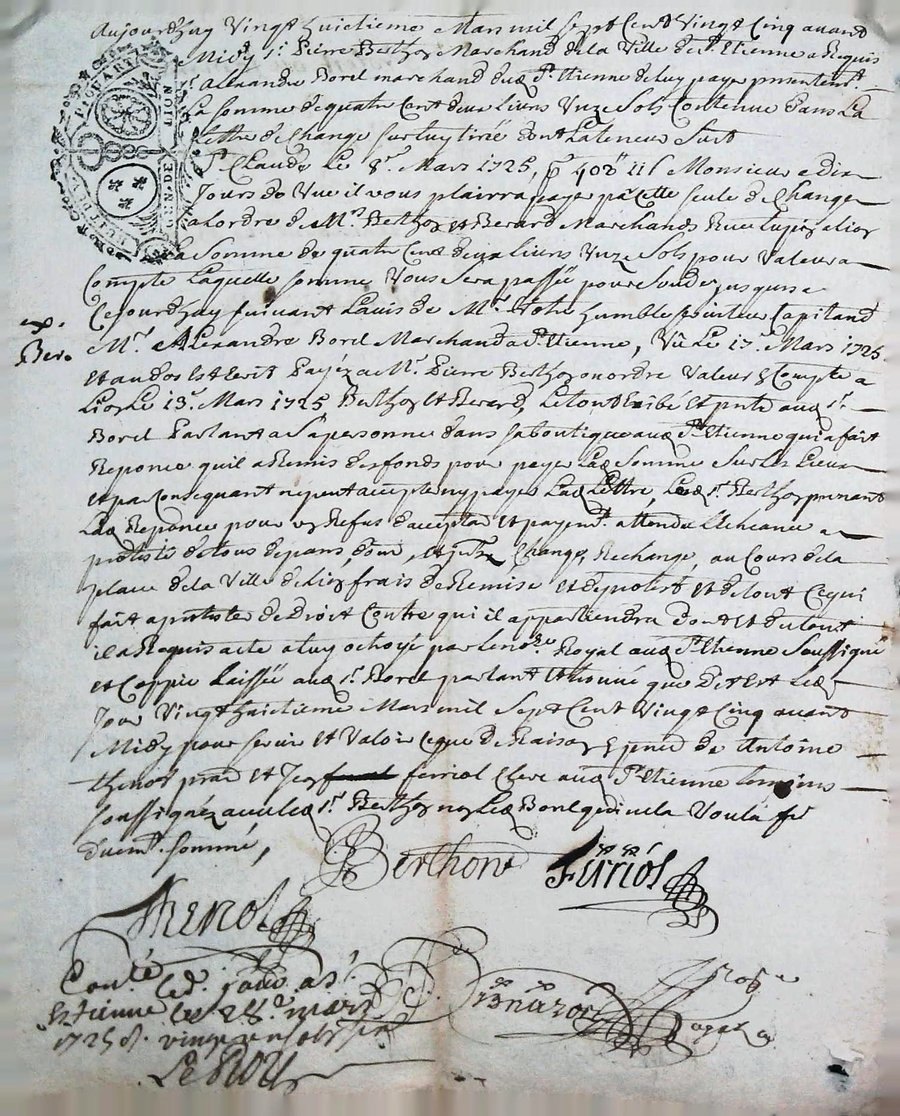 Aujourdhuy Vingt huictieme Mars mil sept Cent Vingt Cinq avant
Midy sr. Pierre Berthon Marchand de la Ville de St. Etienne a Requis
sr. Alexandre Borel marchand dud. St. Etienne de luy payer pntement
La somme de quatre Cent deux Livres Unze Sols Contenue dans La
Lettre de Change sur luy tirée dont La teneur suit
St. Claude Le 8e. Mars 1725, p 402ll 11s Monsieur a Dix
Jours de Vue il vous plairra payer par cette seule de Change
a Lordre de Mrs. Berthon et Berard Marchands
La Somme de quatre Cent deux Livres Unze Sols pour Valeur a
Compte Laquelle somme Vous sera passée pour jusques a
Cejourdhuy suivant Lavis de Mr. Votre humble serviteur Capitand
Mr. Alexandre Borel Marchand a St. Etienne, Vu Le 17e. Mars 1725.
Et au dos est Ecrit Payéz a Mr. Pierre Berthon ou ordre Valeur Compte a
Lion Le 13e. Mars 1725 Berthon et Berard, Le tout Exibé et pnté aud. sr.
Borel Parlant a sa personne dans sa boutique aud. St. Etienne qui a fait
Reponce quil a Remis des fonds pour payer Lad. Somme Sur les Lieux
et par Consequant ne peut accepter ny payer Lad. Lettre, Led. sr. Berthon prenant
Lad. Reponce pour un Refus d'accepter et payemt. attendu Lecheance a
protesté de tous depans, dom. et jntz. Change, Rechange, au Cours de la
place de la Ville de Lion frais de Remise et de protest et de tout Ce qui
fait a protester de Droit Contre qui il appartiendra dont et du tout
il a Requis acte a luy octroyé par Le nore. Royal aud. St. Etienne Soussigné
et Coppie Laissée aud. sr. Borel parlant et trouvé que Dit est Led.
Jour Vingt huictieme Mars mil Sept Cent Vingt Cinq avant
Midy pour servir et Valoir Ce que de Raison En pnce de Antoine
thenot prat. et Jean ferriol Clerc aud. St. Etienne temoins
soussignéz avec led. sr. Berthon non Led. Borel qui ne la Voulu fe
duemt. sommé,
Berthon Ferriol
Thenot
Conlé. a St.
Estienne le 28e. mars
1725